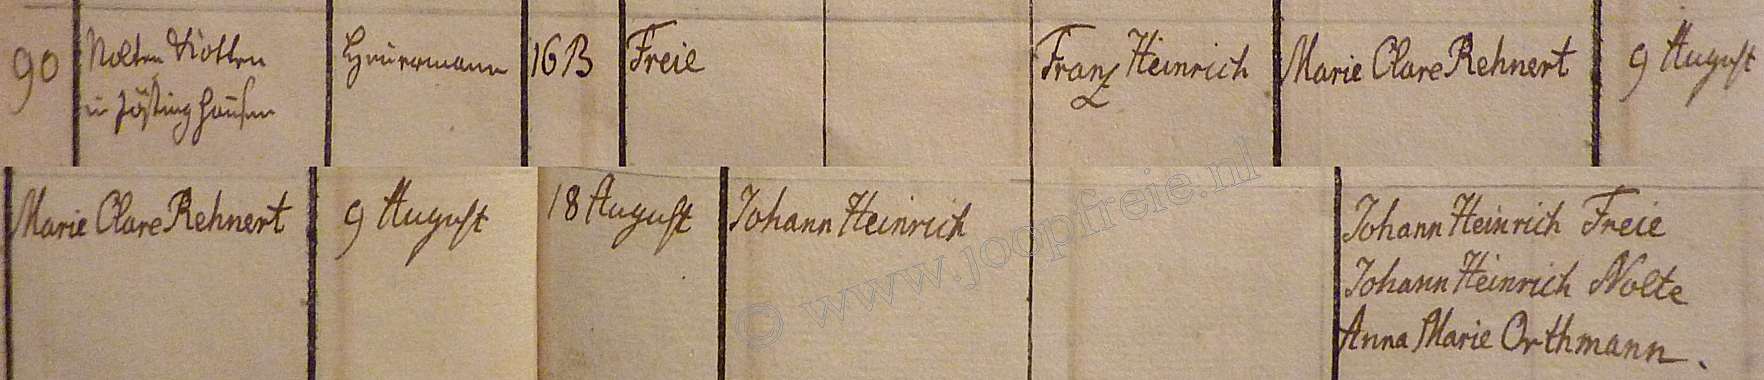 90
Nolten Kotten
in Jöstinghausen
Heuermann
16 B
Freie
Franz Heinrich
Marie Clare Rehnert
9 August
Marie Clare Rehnert
9 August
18 August
Johann Heinrich
Johann Heinrich Freie
Johann Heinrich Nolte
Anna Marie Orthmann.
© www.joopfreie.nl